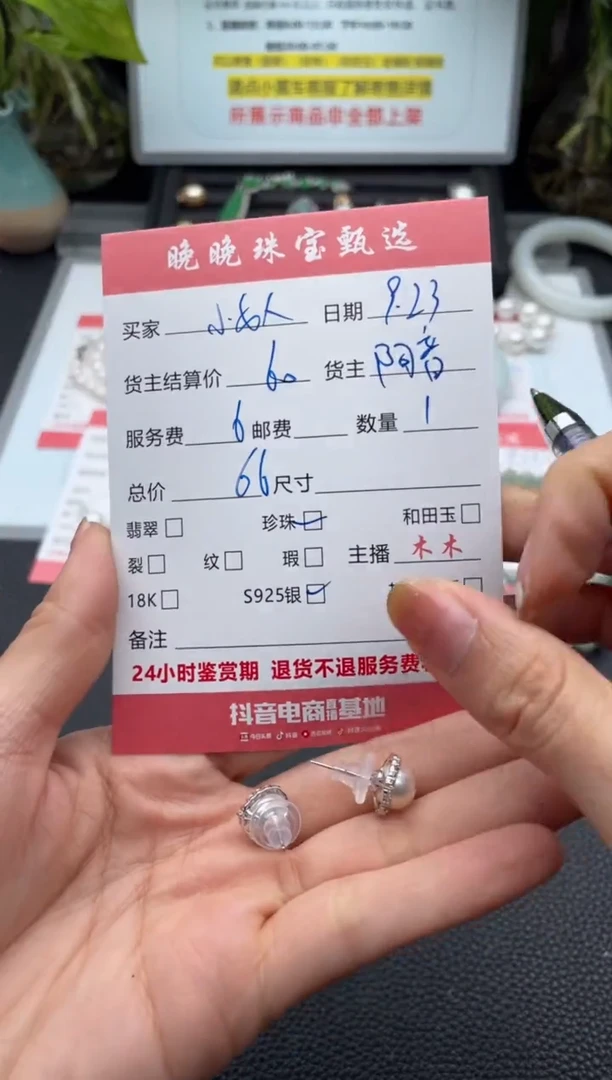 请点小黄车客服了解寄售详情
所展示商品非全部上架
晚晚珠宝甄选
买家 小女人 日期 9.23
货主结算价 60 货主
服务费 6 邮费 数量 1
总价 66 尺寸
翡翠 珍珠 和田玉
裂 纹 瑕 主播 木木
18K S925银
备注
24小时鉴赏期 退货不退服务费
抖音电商直播基地